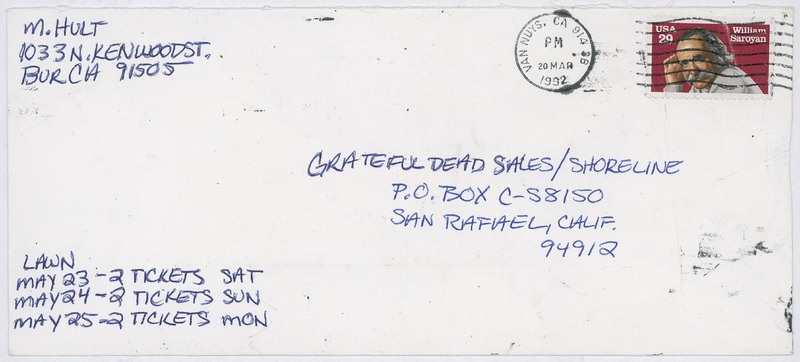 M. HULT
1033 N. KENWOOD ST.
BUR CA 91505
VAN NUYS, CA 914
PM
20 MAR
1992
USA
29
William
Saroyan
GRATEFUL DEAD SALES/SHORELINE
P.O. BOX C-S8150
SAN RAFAEL, CALIF.
94912
LAWN
MAY 23-2 TICKETS SAT
MAY 24-2 TICKETS SUN
MAY 25-2 TICKETS MON